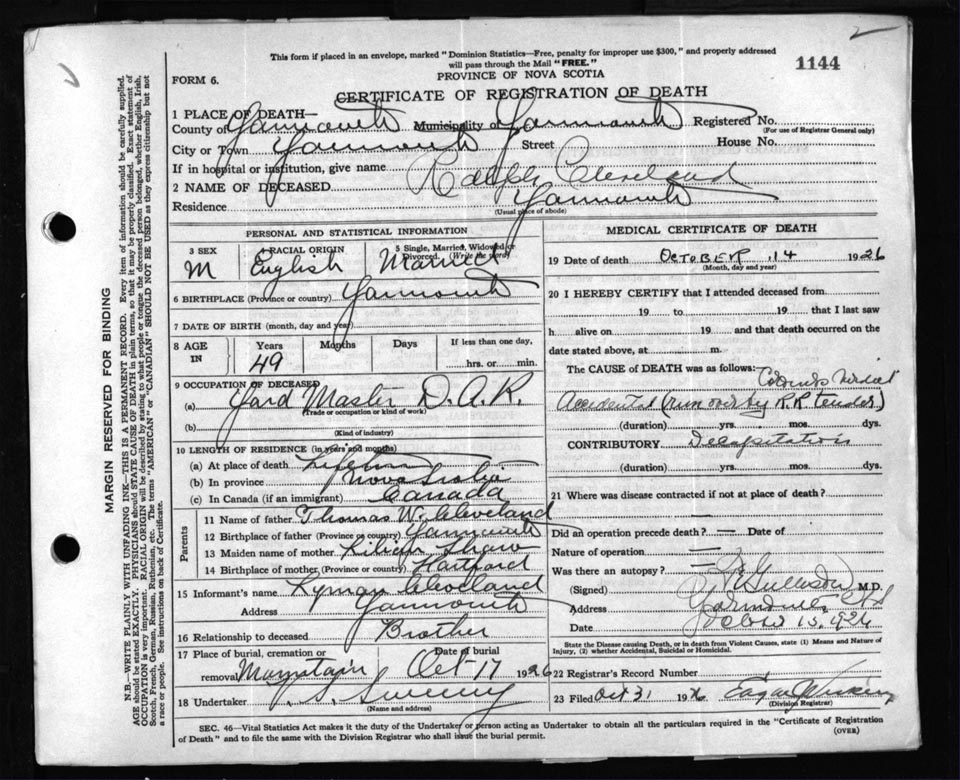 This form if placed in an envelope, marked "Dominion Statistics—Free, penalty for improper use $300," and properly addressed
will pass through the Mail "FREE."
1144
FORM 6.
PROVINCE OF NOVA SCOTIA
CERTIFICATE OF REGISTRATION OF DEATH
1 PLACE OF DEATH—
County of Yarmouth Municipality of Yarmouth Registered No.
(For use of Registrar General only)
City or Town Yarmouth Street House No.
If in hospital or institution, give name
2 NAME OF DECEASED Ralph Cleveland
Residence Yarmouth
(Usual place of abode)
PERSONAL AND STATISTICAL INFORMATION
3 SEX 4 RACIAL ORIGIN 5 Single, Married, Widowed or Divorced. (Write the word)
M English Married
6 BIRTHPLACE (Province or country) Yarmouth
7 DATE OF BIRTH (month, day and year)
8 AGE IN Years Months Days If less than one day,
49 hrs. or min.
9 OCCUPATION OF DECEASED
(a) Yard Master D.A.R.
(Trade or occupation or kind of work)
(b)
(Kind of industry)
10 LENGTH OF RESIDENCE (in years and months)
(a) At place of death Lifetime
(b) In province Nova Scotia
(c) In Canada (if an immigrant) Canada
Parents
11 Name of father Thomas W. Cleveland
12 Birthplace of father (Province or country) Yarmouth
13 Maiden name of mother Lilian Shaw
14 Birthplace of mother (Province or country) Hartford
15 Informant's name Lyman Cleveland
Address Yarmouth
16 Relationship to deceased Brother
17 Place of burial, cremation or removal Date of burial
Mountain Oct 17 1926
18 Undertaker Sweeny
(Name and address)
MEDICAL CERTIFICATE OF DEATH
19 Date of death OCTOBER 14 1926
(Month, day and year)
20 I HEREBY CERTIFY that I attended deceased from
19 to 19 that I last saw
h alive on 19 and that death occurred on the
date stated above, at m.
The CAUSE of DEATH was as follows: Coroner's Verdict
Accidental (run over by R.R. tender)
(duration) yrs. mos. dys.
CONTRIBUTORY Decapitation
(duration) yrs. mos. dys.
21 Where was disease contracted if not at place of death?
Did an operation precede death? — Date of
Nature of operation —
Was there an autopsy? —
(Signed) M.D.
Address Yarmouth
Date 15. 1926
State the Disease causing Death, or in death from Violent Causes, state (1) Means and Nature of
Injury, (2) whether Accidental, Suicidal or Homicidal.
22 Registrar's Record Number
23 Filed Oct 31 1926 Edgar
(Division Registrar)
SEC. 46—Vital Statistics Act makes it the duty of the Undertaker or person acting as Undertaker to obtain all the particulars required in the "Certificate of Registration
of Death" and to file the same with the Division Registrar who shall issue the burial permit.
(OVER)
MARGIN RESERVED FOR BINDING
N.B.—WRITE PLAINLY WITH UNFADING INK—THIS IS A PERMANENT RECORD. Every item of information should be carefully supplied.
AGE should be stated EXACTLY. PHYSICIANS should STATE CAUSE OF DEATH in plain terms, so that it may be properly classified. Exact statement of
OCCUPATION is very important. RACIAL ORIGIN will be described by stating to what people or tongue the deceased person belonged, whether English, Irish,
Scotch, French, German, Russian, Ruthenian, etc. The terms "AMERICAN" or "CANADIAN" SHOULD NOT BE USED as they express citizenship but not
a race or people. See instructions on back of Certificate.